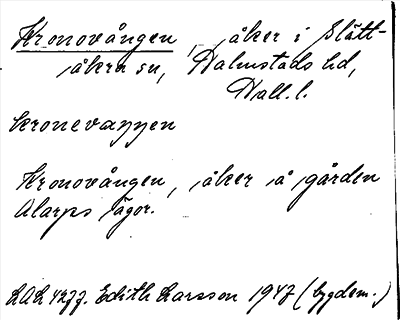 Kronovången, åker i Slätt-
åkra sn, Halmstads hd,
Hall. l.
kronevaŋŋen
Kronovången, åker å gården
Alarps ägor.
LAL 4277. Edith Larsson 1947 (bygdem.)